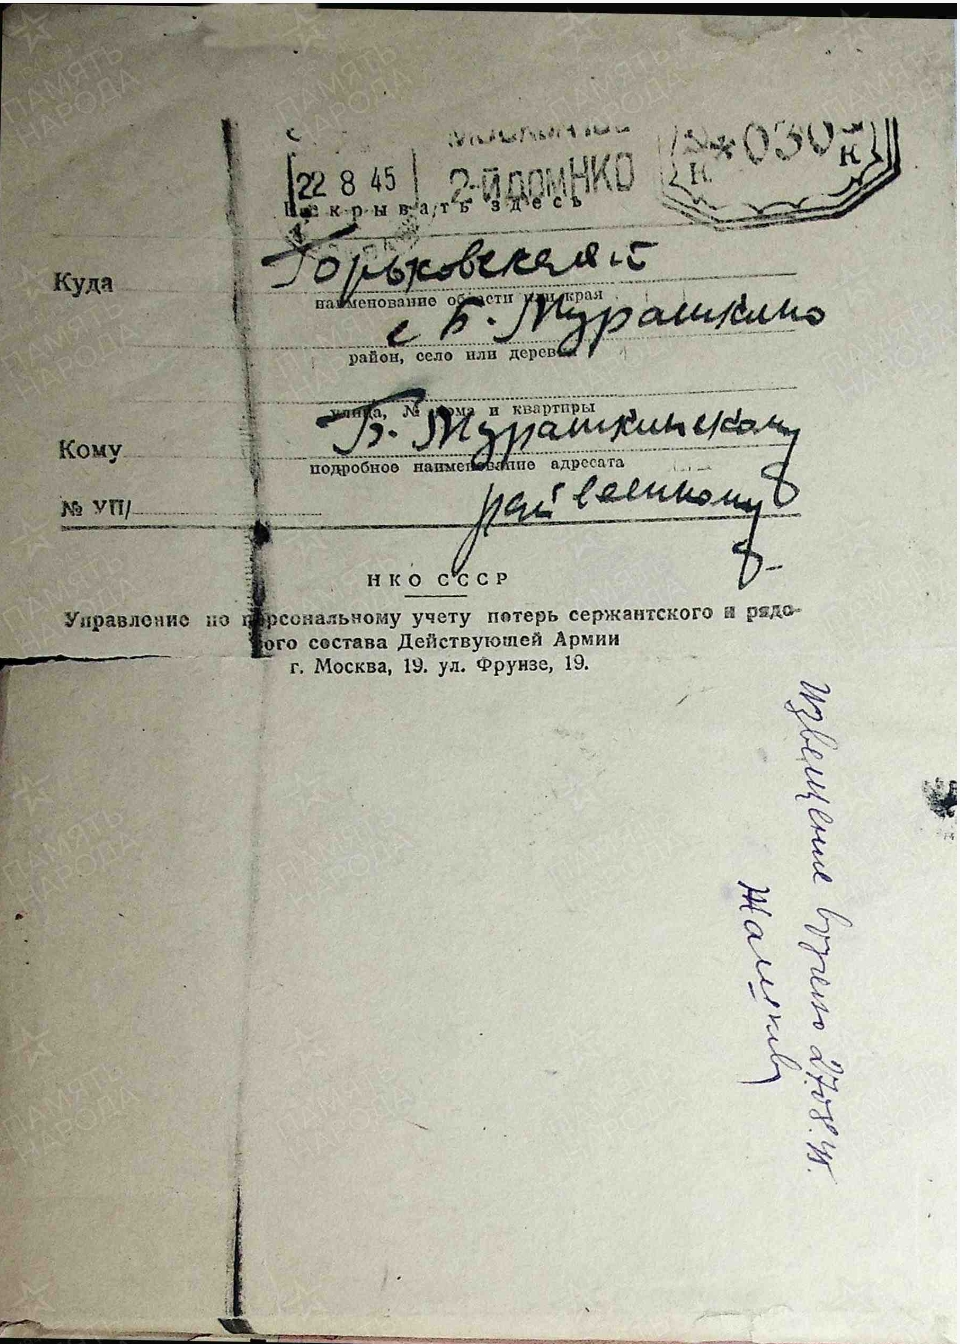 22 8 45
2-й ДОМ НКО
* 030
к
Вскрывать здесь
Куда Горьковская й
наименование области или края
с Б. Мурашкино
район, село или деревня
улица, № дома и квартиры
Кому Б. Мурашкинскому
подробное наименование адресата
рай военкому
№ УП/
НКО СССР
Управление по персональному учету потерь сержантского и рядо-
вого состава Действующей Армии
г. Москва, 19. ул. Фрунзе, 19.
Извещение вручено 27.08.45.
ПАМЯТЬ
НАРОДА